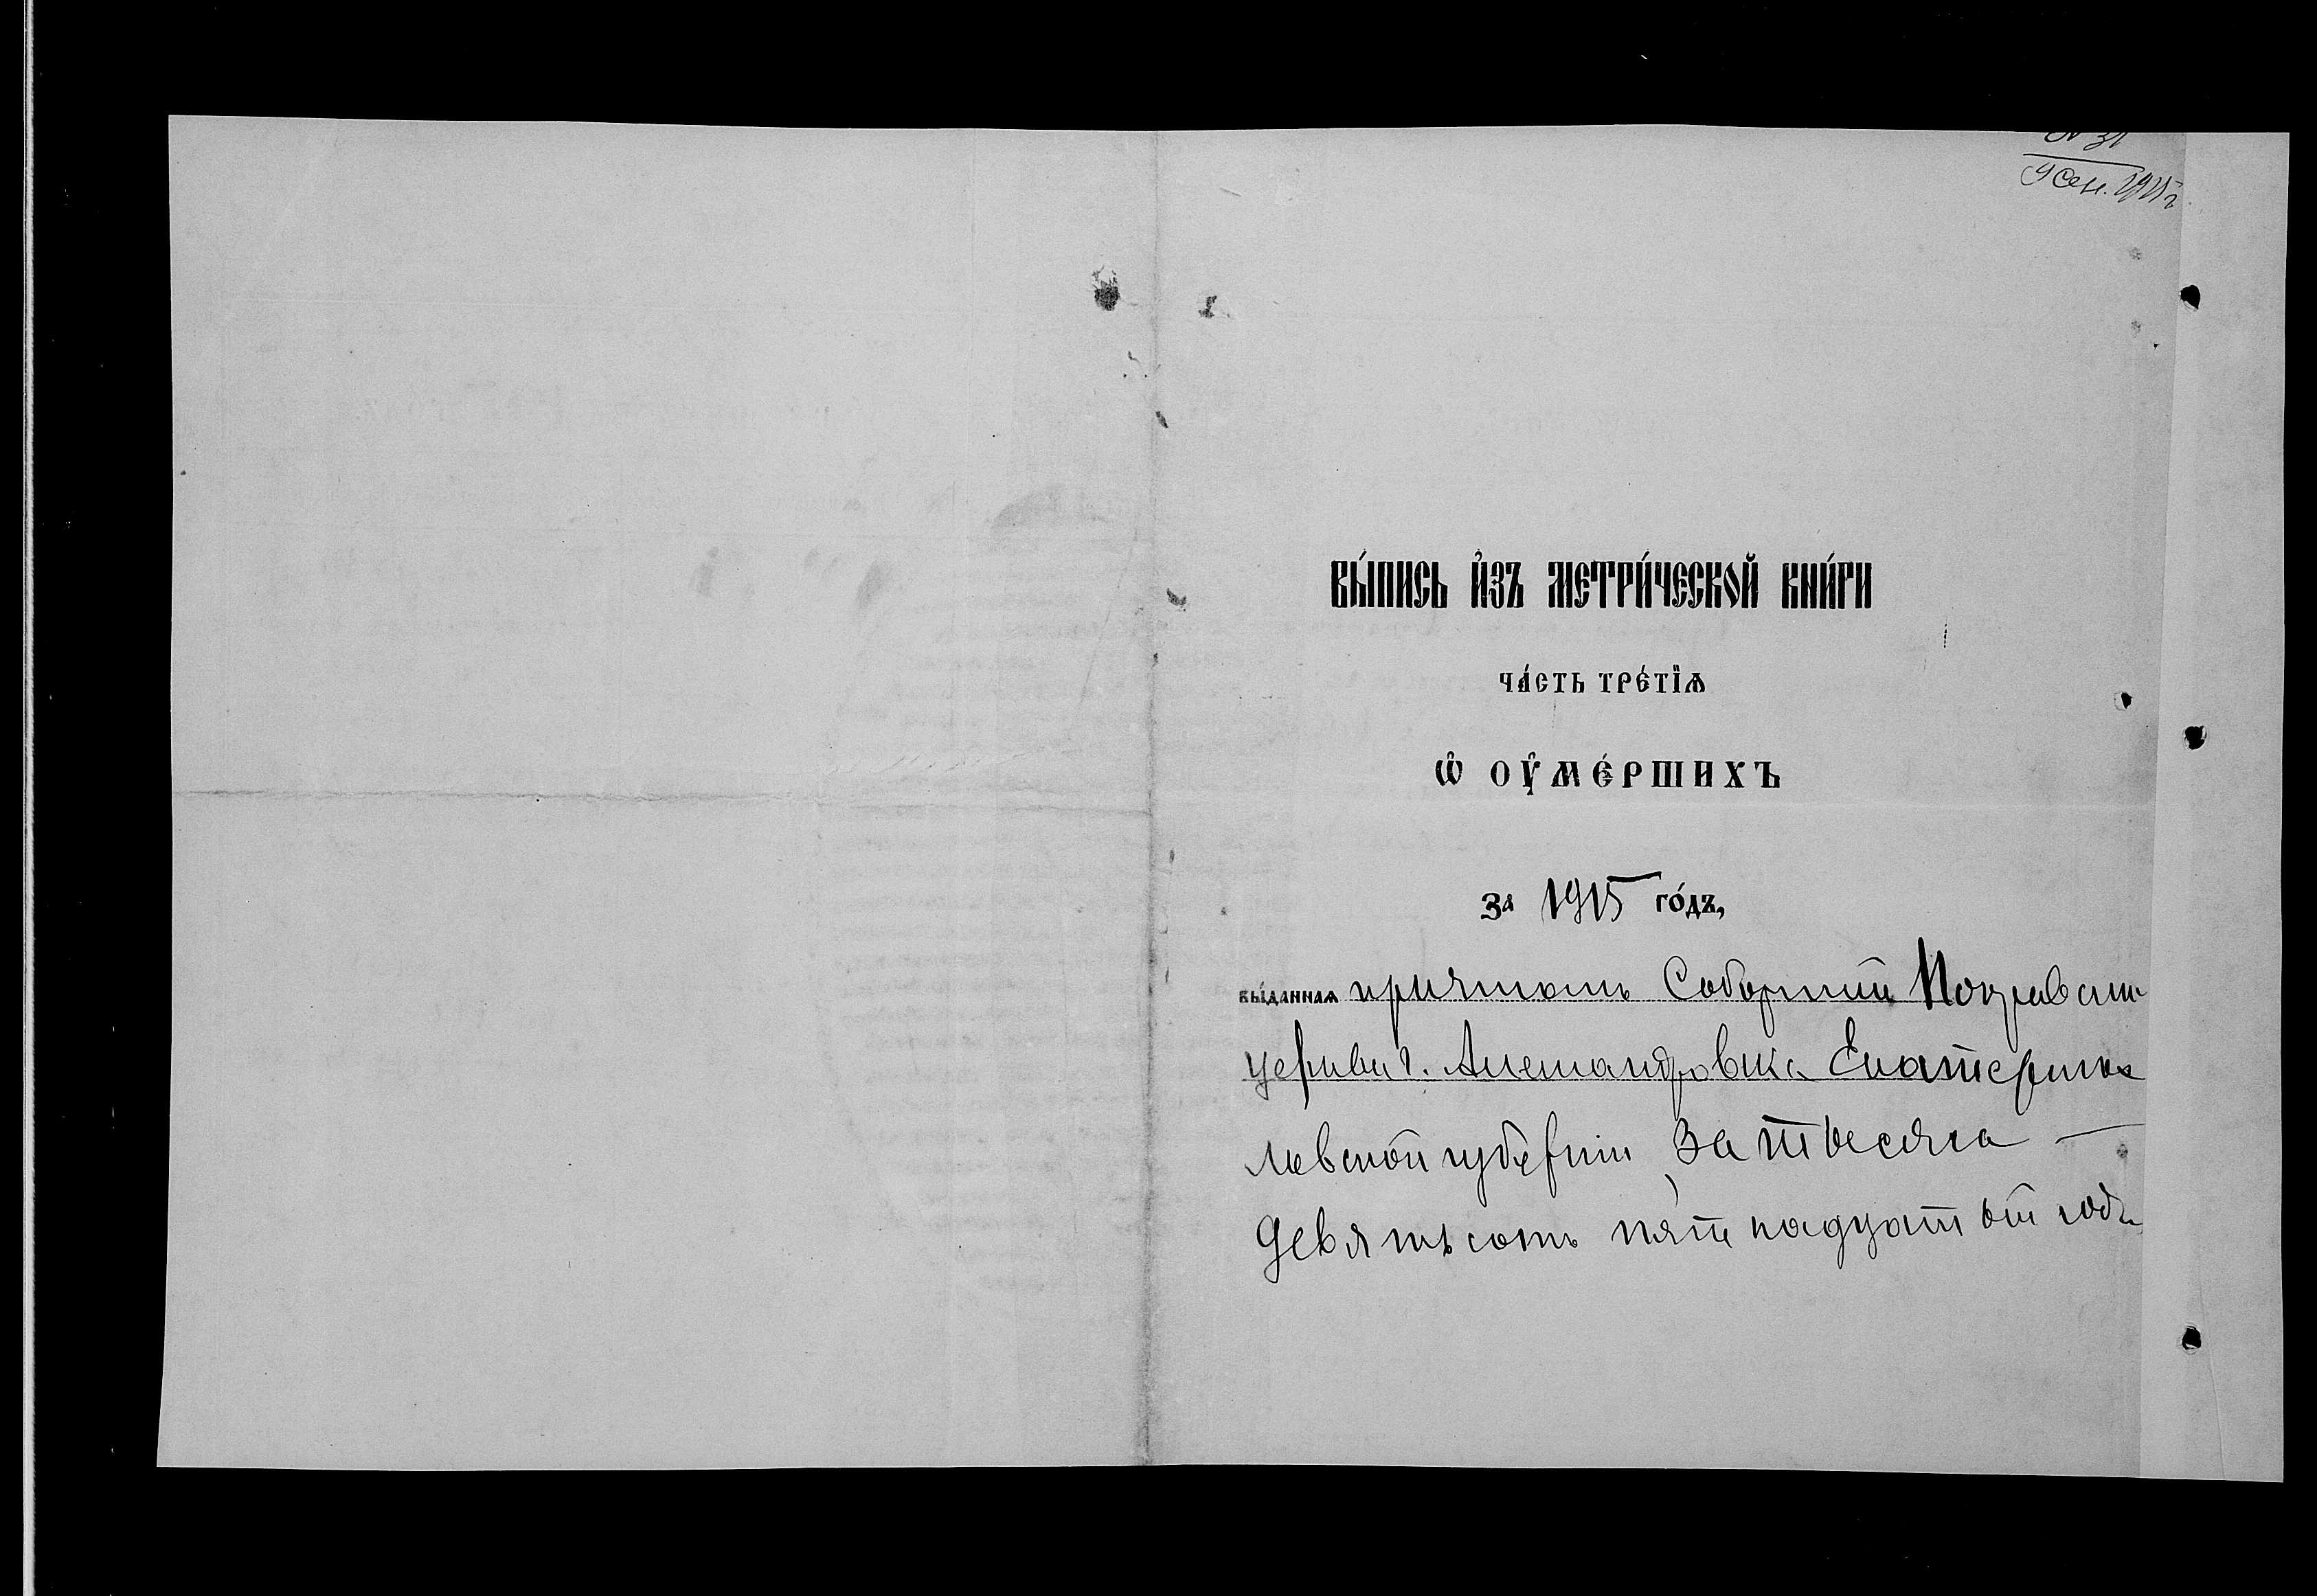 № 31
9 Сен. 1915 г
ВЫ́ПИСЬ И҆ЗЪ МЕТРИ́ЧЕСКОЙ КНИ́ГИ
ЧА́СТЬ ТРЕ́ТЇѦ
Ѡ҆ ОУ҆МЕ́РШИХЪ
За 1915 го́дъ,
вы́даннаѧ причтомъ Соборной Покровской
церкви г. Александровска Екатерино
славской губерніи за тысяча —
девятьсотъ пятнадцатый годъ